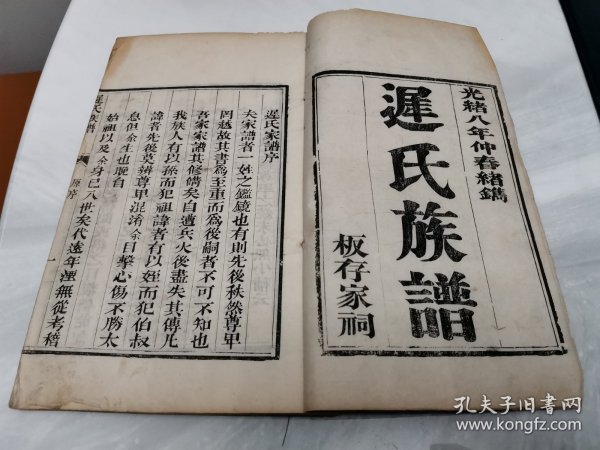 光緒八年仲春緒鐫
遲氏族譜
板存家祠
遲氏家譜序
夫家譜者一姓之鑑鏡也有則先後秩然尊卑
罔越故其書為至重而為後嗣者不可不知也
吾家家譜其修備矣自遭兵火後盡失其傳凡
我族人有以孫而犯祖諱者有以姪而犯伯叔
諱者先後莫辨尊卑混淆余目擊心傷不勝太
息但余生也聣自
始祖以及余身已八世矣代遠年湮無從考稽
遲氏族譜
原序
一
孔夫子旧书网
www.kongfz.com